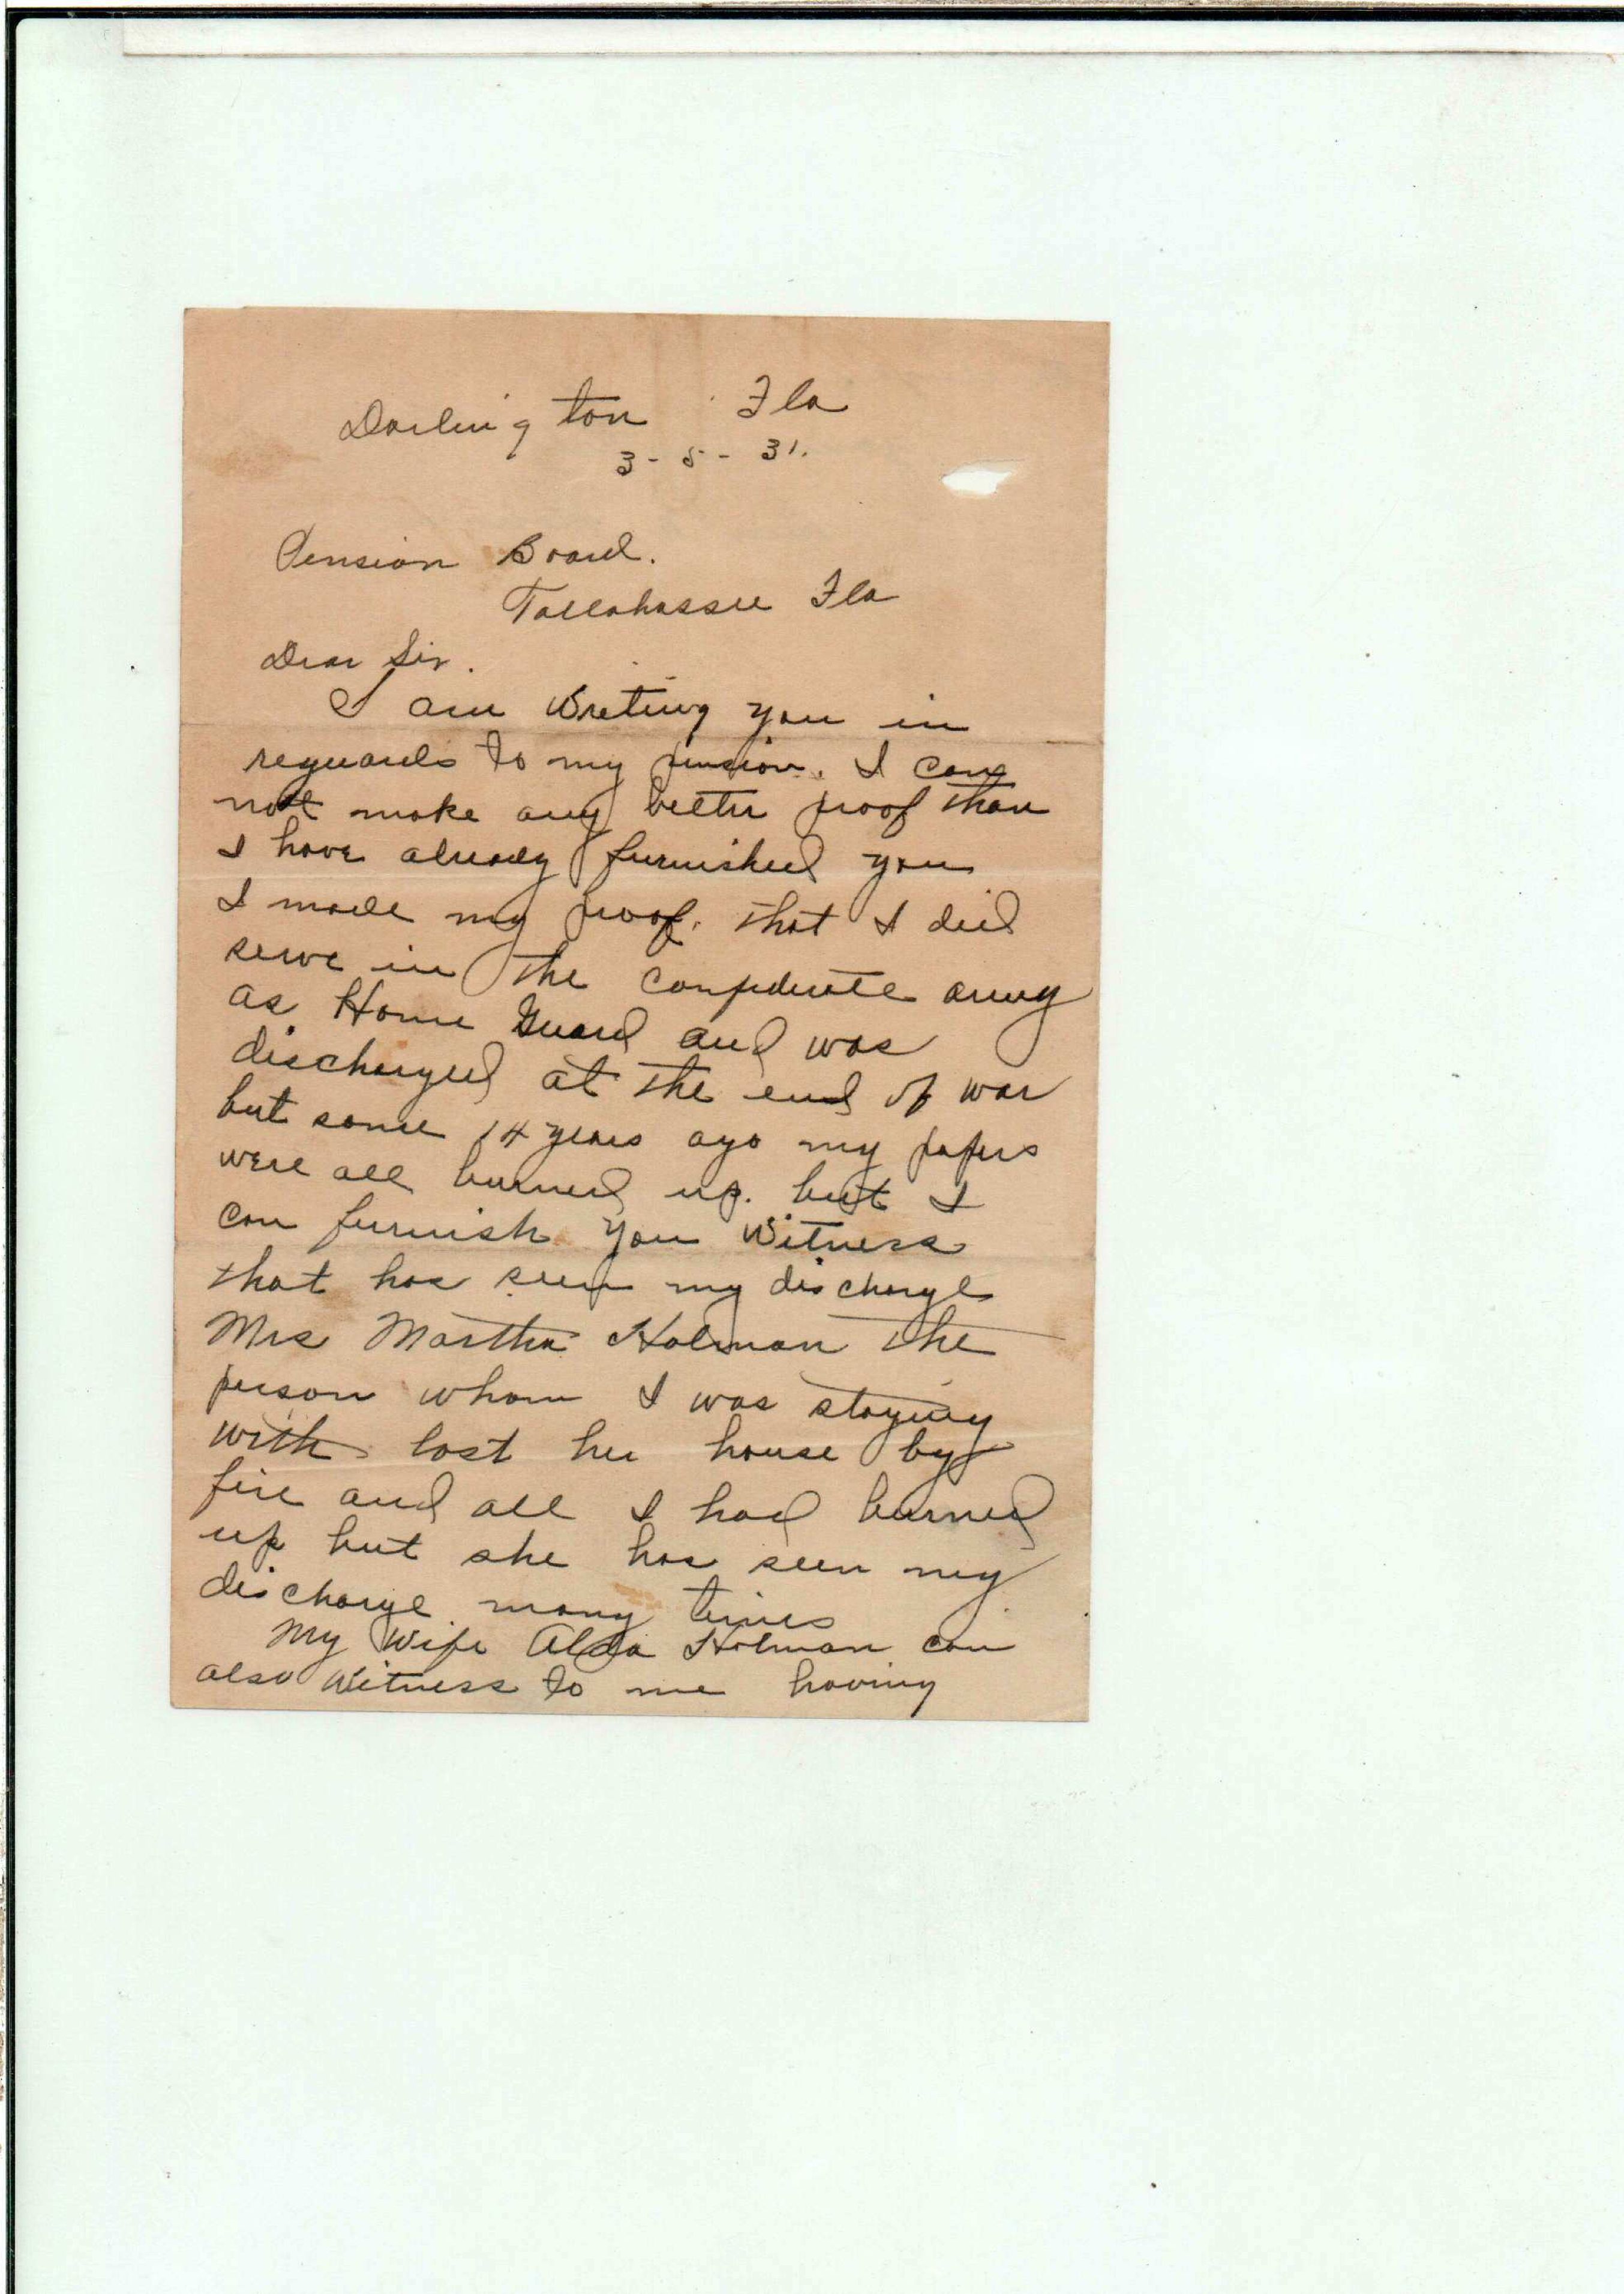 Darlington Fla
3-5-31.
Pension Board.
Tallahassee Fla
Dear Sir.
I am Writing you in
reguards to my pension. I can
not make any better proof than
I have already furnished you
I made my proof. that I did
serve in the confederate army
as Home Guard and was
discharged at the end of war
but some 14 years ago my papers
were all burned up. but I
can furnish you Witness
that has seen my discharge
Mrs Martha Holman the
person whom I was staying
with lost her house by
fire and all I had burned
up but she has seen my
discharge many times
My Wife Alda Holman can
also Witness to me having